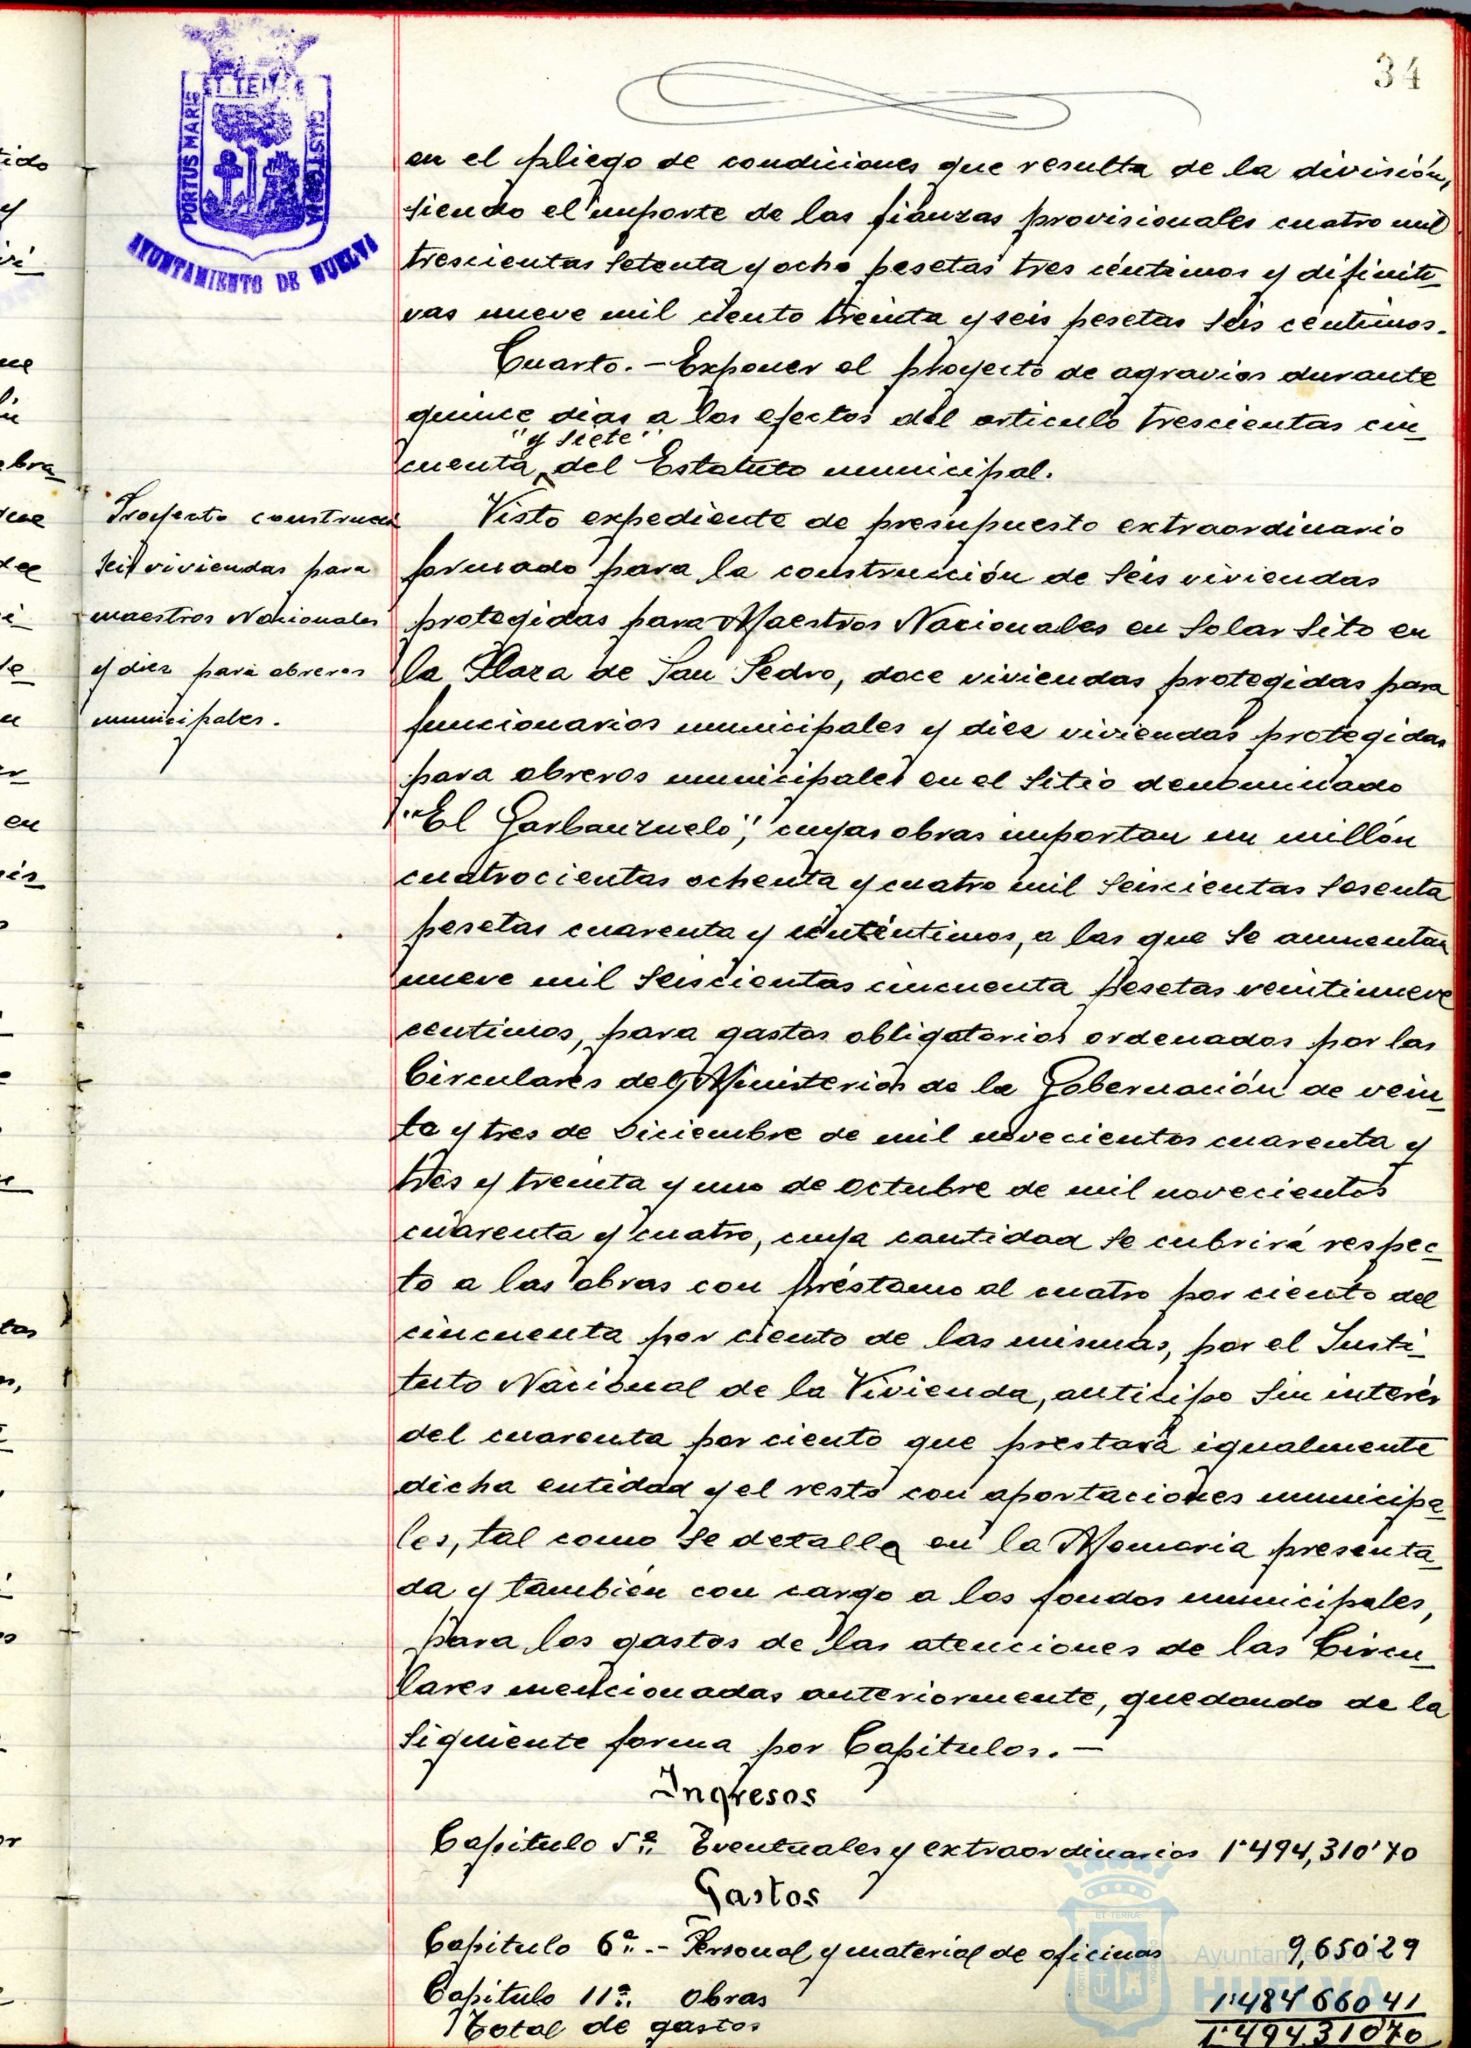 34
PORTUS MARIS
ET TERRE
CUSTODIA
AYUNTAMIENTO DE HUELVA
en el pliego de condiciones que resulta de la división,
siendo el importe de las fianzas provisionales cuatro mil
trescientas setenta y ocho pesetas tres céntimos y difiniti-
vas nueve mil ciento treinta y seis pesetas seis céntimos.
Cuarto.- Exponer el proyecto de agravios durante
quince dias a los efectos del articulo trescientas cin-
"y siete"
cuenta del Estatuto municipal.
Proyecto construcci
seis viviendas para
maestros Nacionales
y diez para obreros
municipales.
Visto expediente de presupuesto extraordinario
formado para la construcción de seis viviendas
protegidas para Maestros Nacionales en solar sito en
la Plaza de San Pedro, doce viviendas protegidas para
funcionarios municipales y diez viviendas protegidas
para obreros municipales en el sitio denominado
"El Garbanzuelo", cuyas obras importan un millón
cuatrocientas ochenta y cuatro mil seiscientas sesenta
pesetas cuarenta y céntimos, a las que se aumentan
nueve mil seiscientas cincuenta pesetas veintinueve
centimos, para gastos obligatorios ordenados por las
Circulares del Ministerio de la Gobernación de vein-
te y tres de Diciembre de mil novecientos cuarenta y
tres y treinta y uno de Octubre de mil novecientos
cuarenta y cuatro, cuya cantidad se cubrirá respec-
to a las obras con préstamo al cuatro por ciento del
cincuenta por ciento de las mismas, por el Insti-
tuto Nacional de la Vivienda, anticipo sin interés
del cuarenta por ciento que prestará igualmente
dicha entidad y el resto con aportaciones municipa-
les, tal como se detalla en la Memoria presenta-
da y también con cargo a los fondos municipales,
para los gastos de las atenciones de las Circu-
lares mencionadas anteriormente, quedando de la
siguiente forma por Capitulos.-
Ingresos
Capitulo 5º. Eventuales y extraordinarios 1'494,310'70
Gastos
Capitulo 6º.- Personal y material de oficinas 9,650'29
Capitulo 11º. Obras 1'484'660'41
Total de gastos 1'494.310'70
ET TERRA
Ayuntamiento de
HUELVA